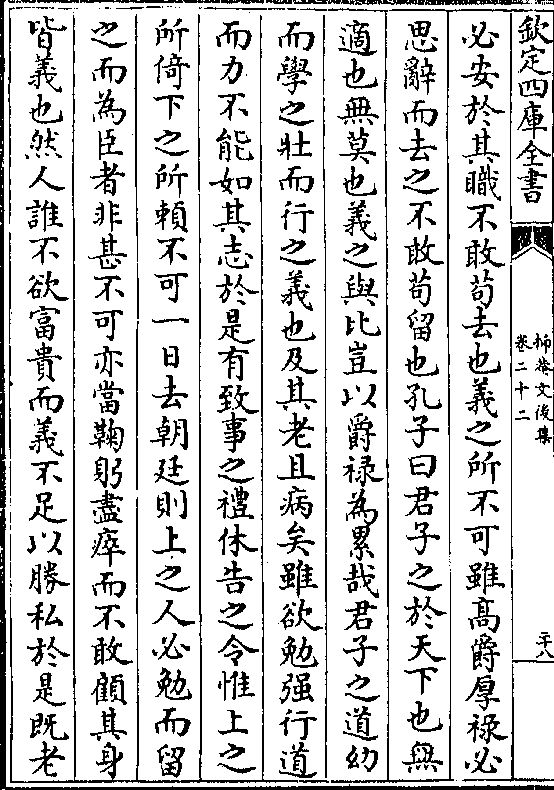 欽定四庫全書
柳菴文後集
卷二十二
二十八
必安於其職不敢苟去也義之所不可雖高爵厚禄必
思辭而去之不敢苟留也孔子曰君子之於天下也無
適也無莫也義之與比豈以爵禄為累哉君子之道幼
而學之壯而行之義也及其老且病矣雖欲勉强行道
而力不能如其志於是有致事之禮休告之令惟上之
所倚下之所頼不可一日去朝廷則上之人必勉而留
之而為臣者非甚不可亦當鞠躬盡瘁而不敢顧其身
皆義也然人誰不欲富貴而義不足以勝私於是既老